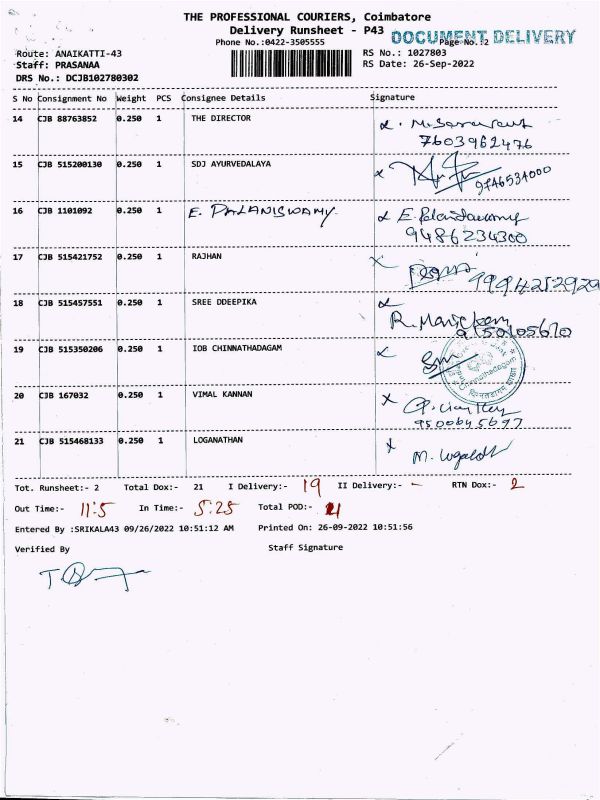 THE PROFESSIONAL COURIERS, Coimbatore
Delivery Runsheet - P43
DOCUMENT DELIVERY
Phone No.:0422-3505555 Page No.:2
Route: ANAIKATTI-43 RS No.: 1027803
Staff: PRASANAA RS Date: 26-Sep-2022
DRS No.: DCJB102780302
S No Consignment No Weight PCS Consignee Details Signature
14 CJB 88763852 0.250 1 THE DIRECTOR
7603962476
15 CJB 515200130 0.250 1 SDJ AYURVEDALAYA
9746534000
16 CJB 1101092 0.250 1 E. PALANISWAMY. E. Palaniswamy
9486234300
17 CJB 515421752 0.250 1 RAJHAN
9994252929
18 CJB 515457551 0.250 1 SREE DDEEPIKA
R. Manickam
9150105610
19 CJB 515350206 0.250 1 IOB CHINNATHADAGAM
20 CJB 167032 0.250 1 VIMAL KANNAN
9500645697
21 CJB 515468133 0.250 1 LOGANATHAN
Tot. Runsheet:- 2 Total Dox:- 21 I Delivery:- 19 II Delivery:- - RTN Dox:- 2
Out Time:- 11:5 In Time:- 5:25 Total POD:- 21
Entered By :SRIKALA43 09/26/2022 10:51:12 AM Printed On: 26-09-2022 10:51:56
Verified By Staff Signature